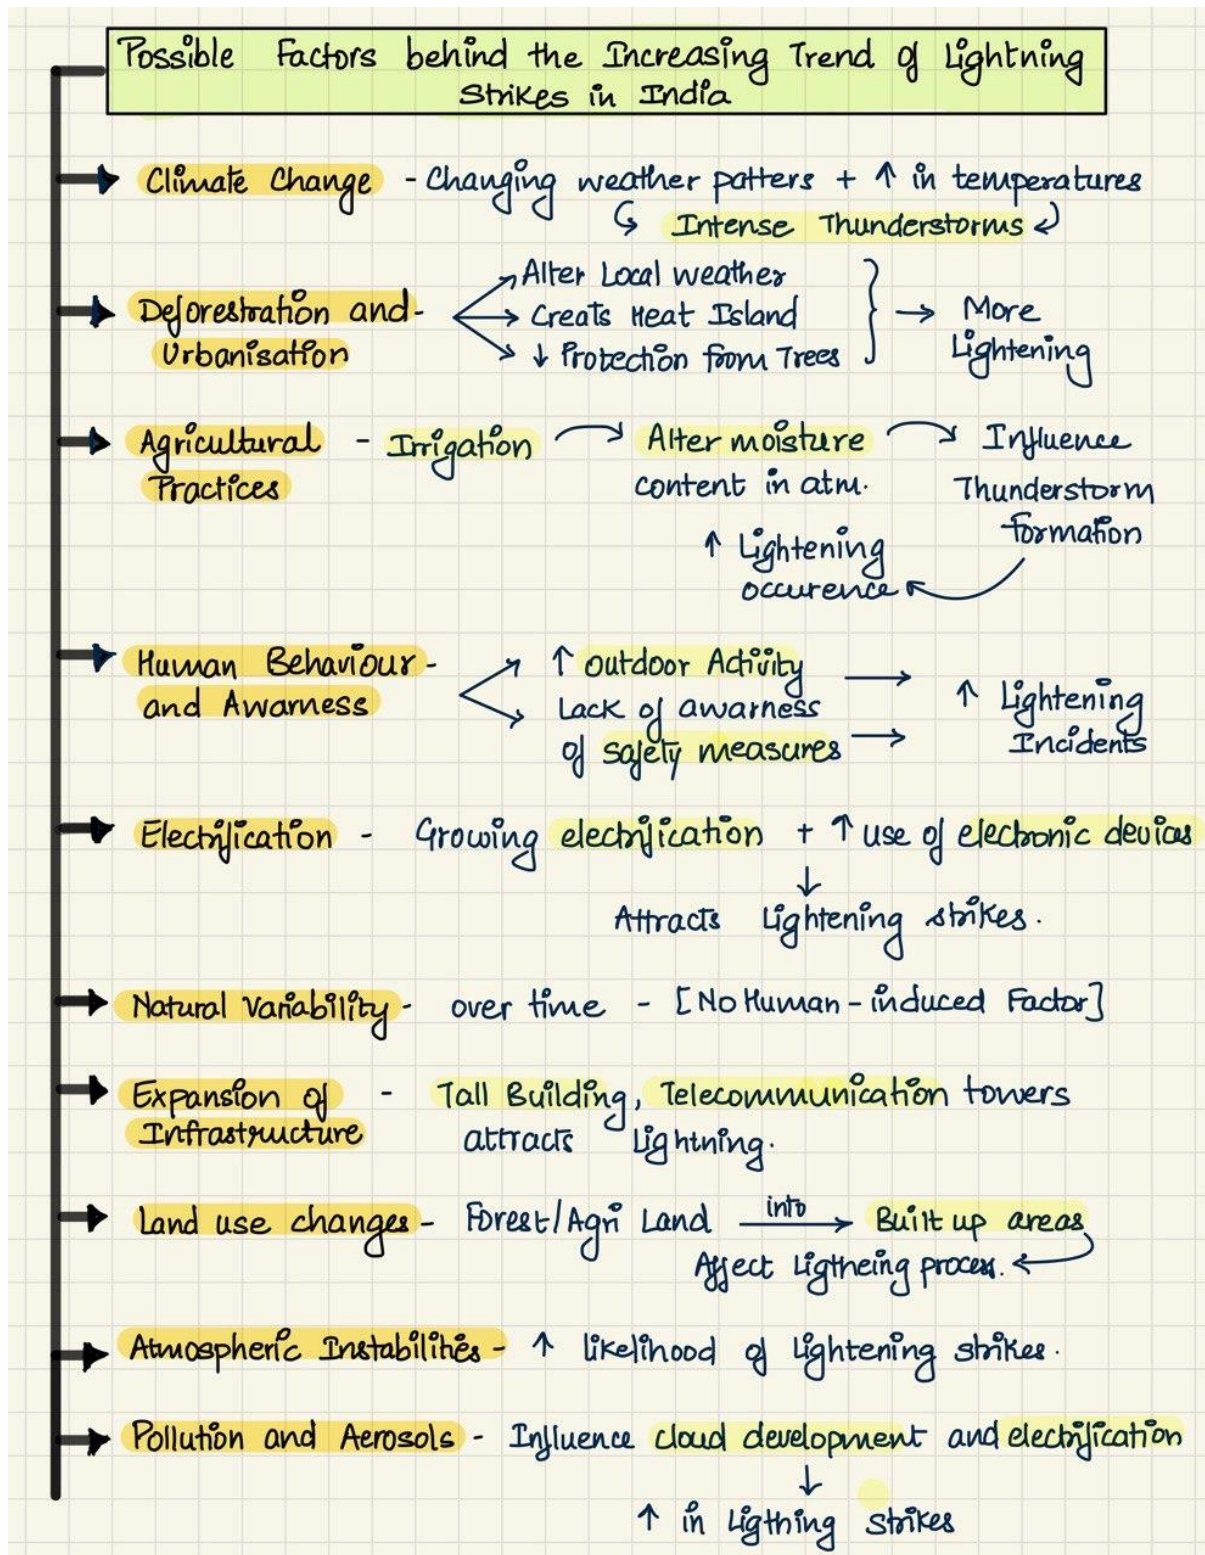 Possible Factors behind the Increasing Trend of Lightning
Strikes in India
Climate Change - Changing weather patters + ↑ in temperatures
Intense Thunderstorms
Deforestration and - Alter Local weather
Urbanisation
Creats Heat Island
↓ Protection from Trees
→ More
Lightening
Agricultural - Irrigation → Alter moisture → Influence
Practices content in atm. Thunderstorm
formation
↑ Lightening
occurence
Human Behaviour - ↑ outdoor Activity →
and Awarness Lack of awarness
of safety measures →
↑ Lightening
Incidents
Electrification - Growing electrification + ↑ use of electronic devices
↓
Attracts Lightening strikes.
Natural Variability - over time - [No Human-induced Factor]
Expansion of - Tall Building, Telecommunication towers
Infrastructure attracts Lightning.
Land use changes - Forest/Agri Land into → Built up areas
Affect Ligtheing process.
Atmospheric Instabilites - ↑ likelihood of Lightening strikes.
Pollution and Aerosols - Influence cloud development and electrification
↓
↑ in Ligthing strikes